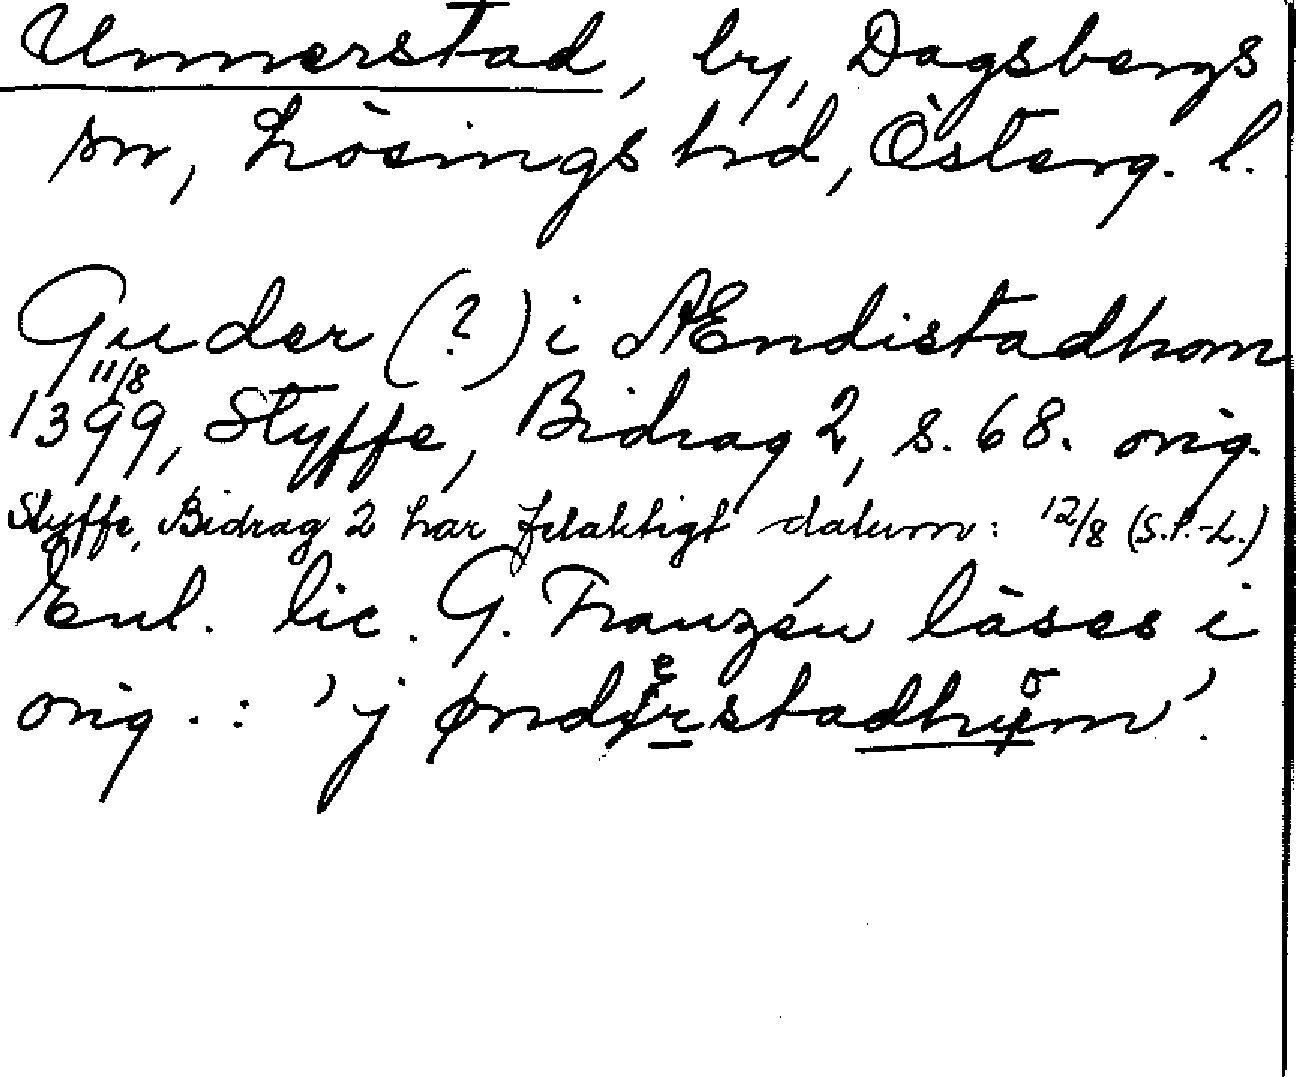 Unnerstad, by, Dagsbergs
sn, Lösings hd, Österg. l.
Guder (?) i Ændistadhom
11/8
1399, Styffe, Bidrag 2, s. 68. orig.
Styffe, Bidrag 2 har felaktigt datum: 12/8 (S.P.-L.)
Enl. lic. G. Franzén läses i
orig.: 'j ønderstadhom'.